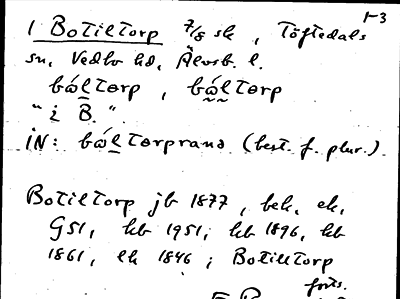 1-3
1 Botiltorp 7/8 sk, Töftedals
sn, Vedbo hd, Älvsb. l.
bå̀ltorp, bå̀ltorp
"i B."
iN: bå̀ltorprana (best. f. plur.).
Botiltorp jb 1877, bek, ek,
G51, kb 1951; kb 1896, kb
1861, ek 1846; Botilltorp
forts.